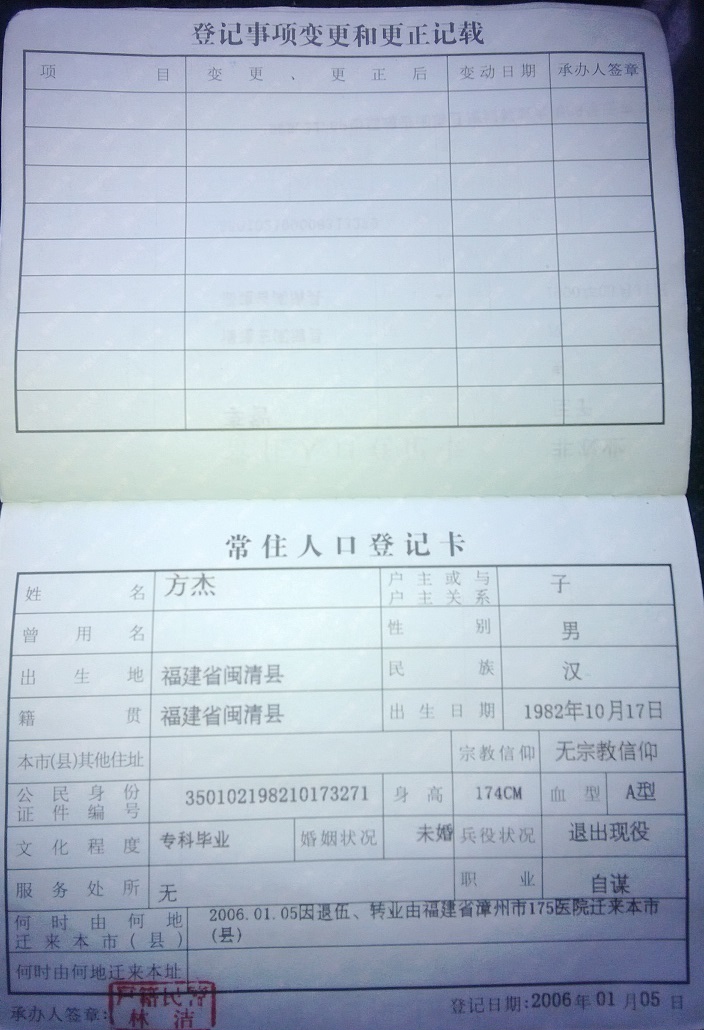 登记事项变更和更正记载
项目 变更、更正后 变动日期 承办人签章
常住人口登记卡
姓名 方杰 户主或与户主关系 子
曾用名 性别 男
出生地 福建省闽清县 民族 汉
籍贯 福建省闽清县 出生日期 1982年10月17日
本市(县)其他住址 宗教信仰 无宗教信仰
公民身份证件编号 350102198210173271 身高 174CM 血型 A型
文化程度 专科毕业 婚姻状况 未婚 兵役状况 退出现役
服务处所 无 职业 自谋
何时由何地迁来本市(县) 2006.01.05因退伍、转业由福建省漳州市175医院迁来本市(县)
何时由何地迁来本址
承办人签章: 户籍民警 林洁 登记日期:2006年01月05日